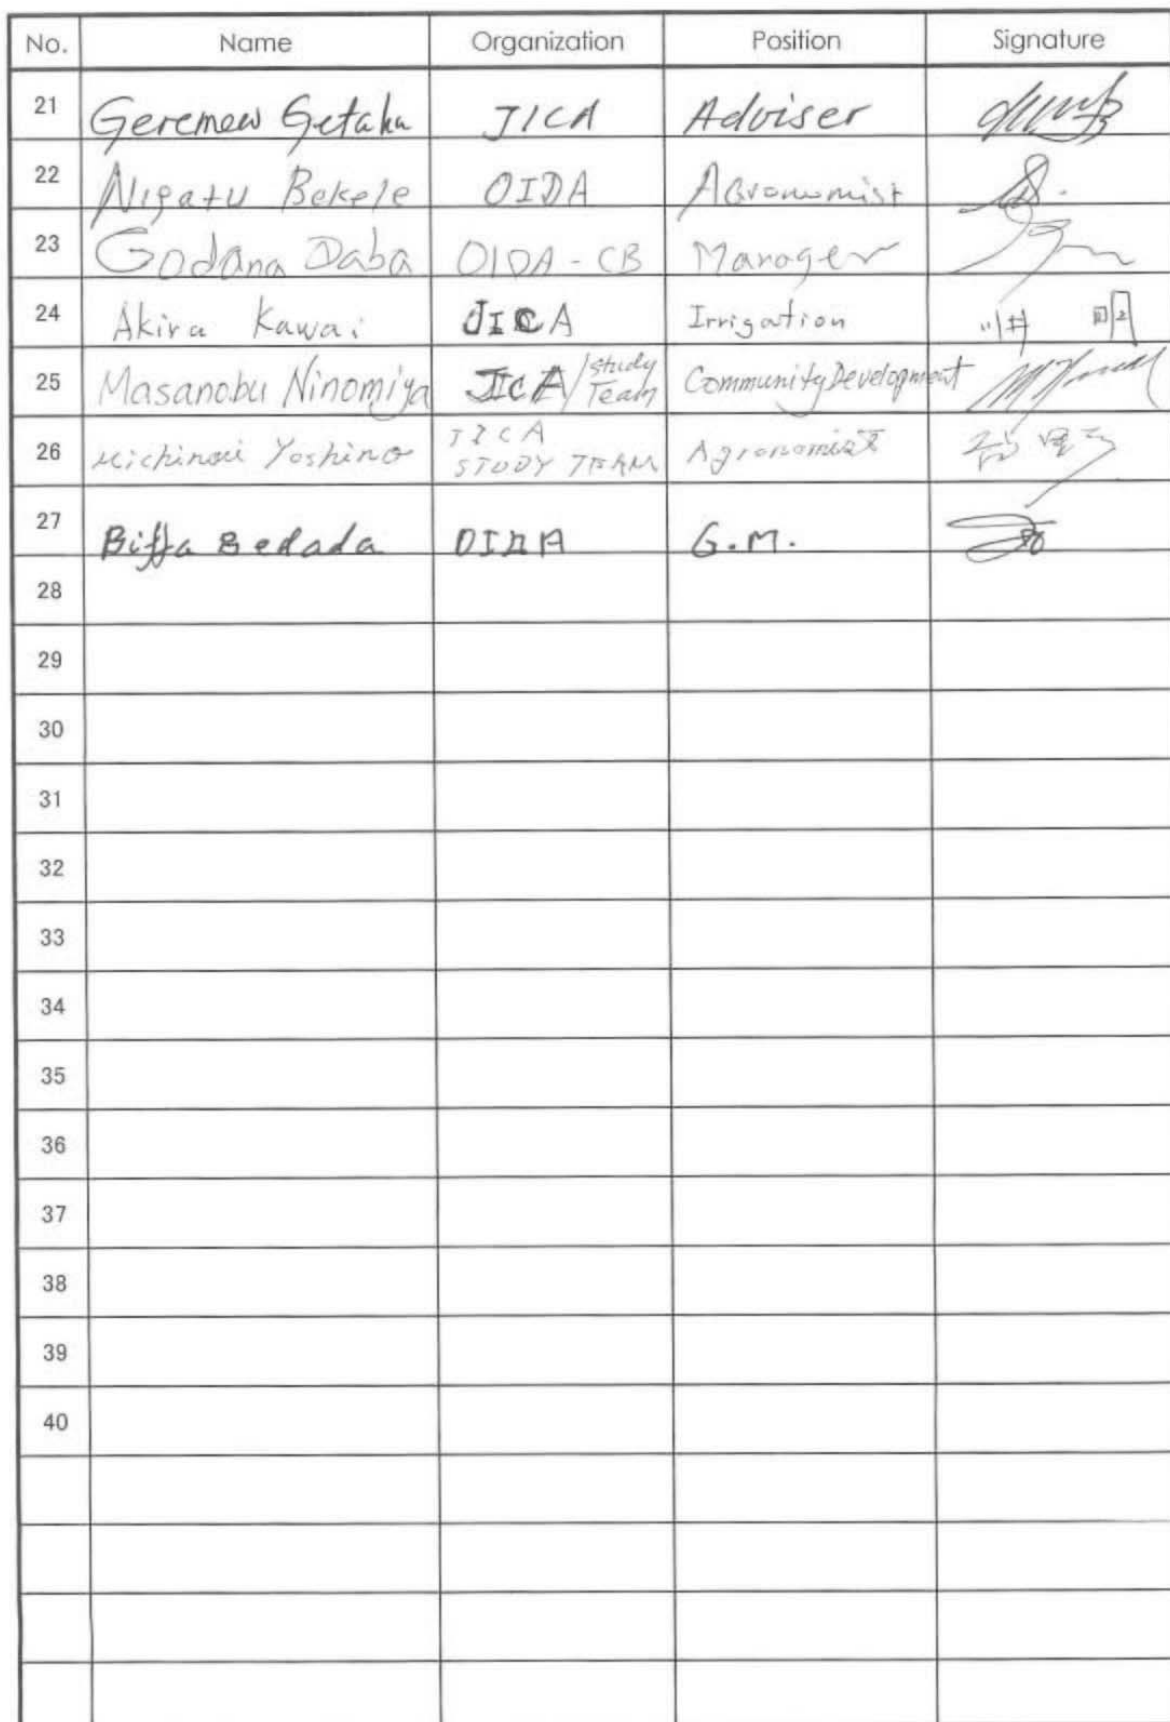 No. Name Organization Position Signature
21 Geremew Getaka JICA Adviser
22 Nigatu Bekele OIDA Agronomist
23 Godana Daba OIDA - CB Manager
24 Akira Kawai JICA Irrigation 川井 明
25 Masanobu Ninomiya JICA/Study Team Community Development
26 Michinori Yoshino JICA STUDY TEAM Agronomist
27 Biffa Bedada OIDA G.M.
28
29
30
31
32
33
34
35
36
37
38
39
40